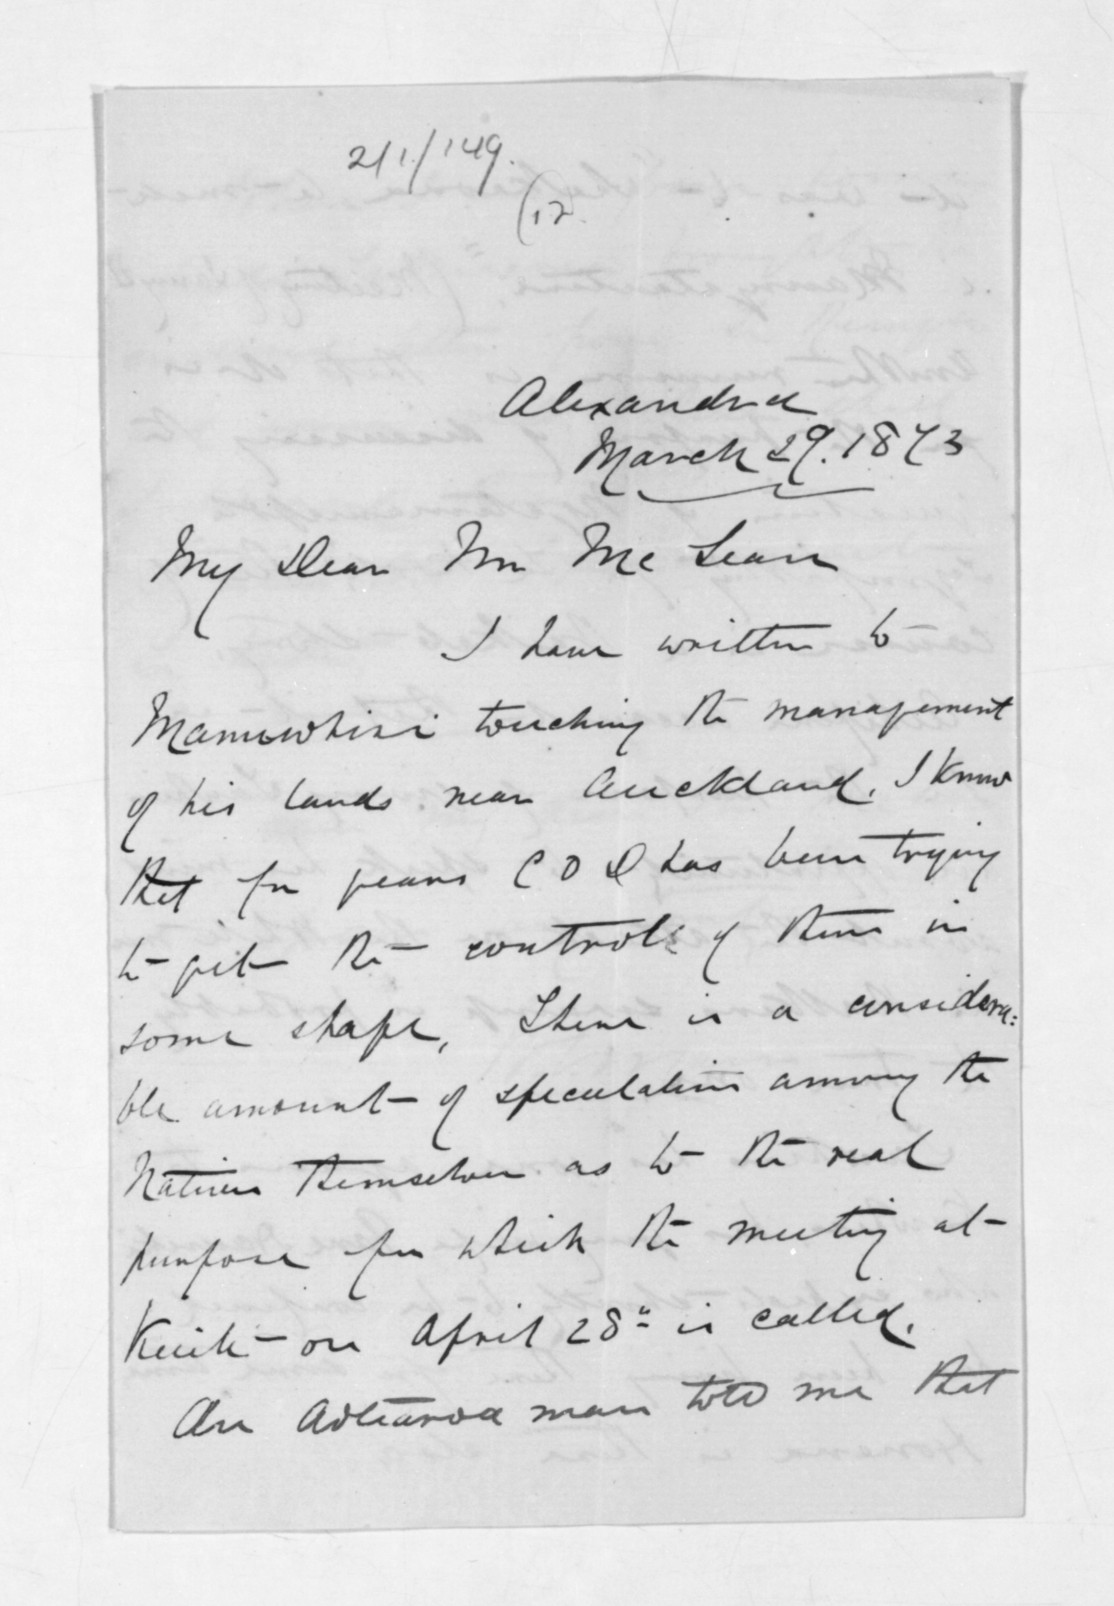 2/1/149.
(12
Alexandra
March 29. 1873
My Dear Mr McLean
I have written to
Manuwhiri touching the management
of his lands near Auckland. I know
that for years C O D has been trying
to get the control of them in
some shape, There is a considera=
ble amount of speculation among the
Natives themselves as to the real
purpose for which the meeting at
Kuiti on April 28" is called.
An Aotearoa man told me that